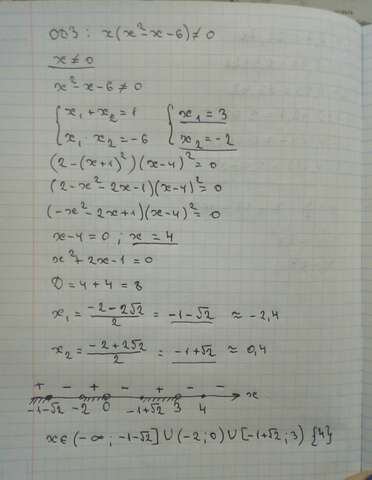 ОДЗ: x(x²-x-6)≠0
x≠0
x²-x-6≠0
{ x₁+x₂=1 { x₁=3
{ x₁ x₂=-6 { x₂=-2
(2-(x+1)²)(x-4)²=0
(2-x²-2x-1)(x-4)²=0
(-x²-2x+1)(x-4)²=0
x-4=0; x=4
x²+2x-1=0
D=4+4=8
x₁=(-2-2√2)/2=-1-√2 ≈ -2,4
x₂=(-2+2√2)/2=-1+√2 ≈ 0,4
+ - + - + - -
-1-√2 -2 0 -1+√2 3 4 x
x∈(-∞; -1-√2]∪(-2;0)∪[-1+√2;3) {4}